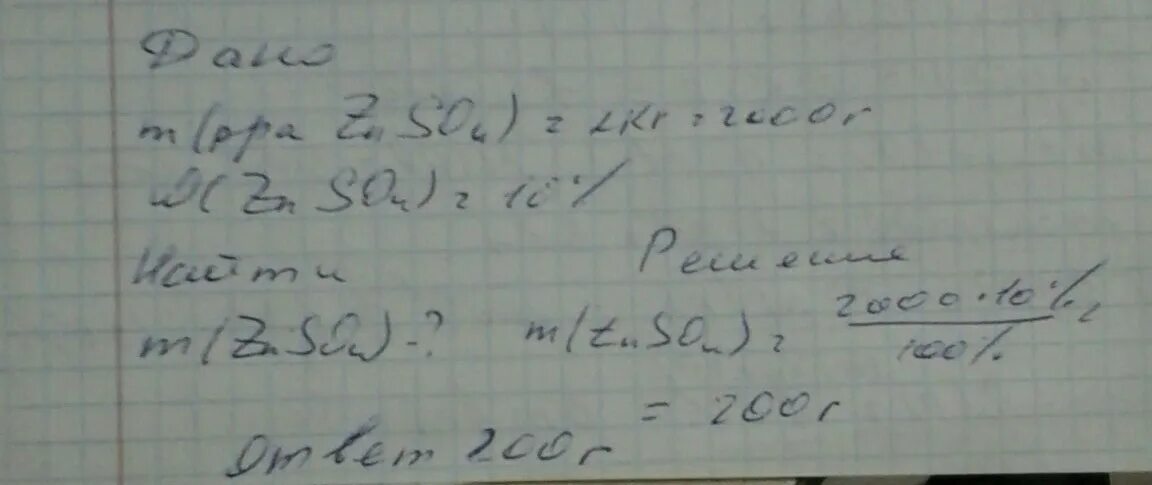 Дано
m(рра ZnSO₄) = 2кг = 2000г
ω(ZnSO₄) = 10%
Найти Решение
m(ZnSO₄) - ? m(ZnSO₄) = 2000 · 10% / 100% =
= 200г
Ответ 200г